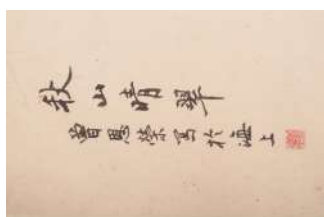 秋山晴翠
曾恩榮写於滬上